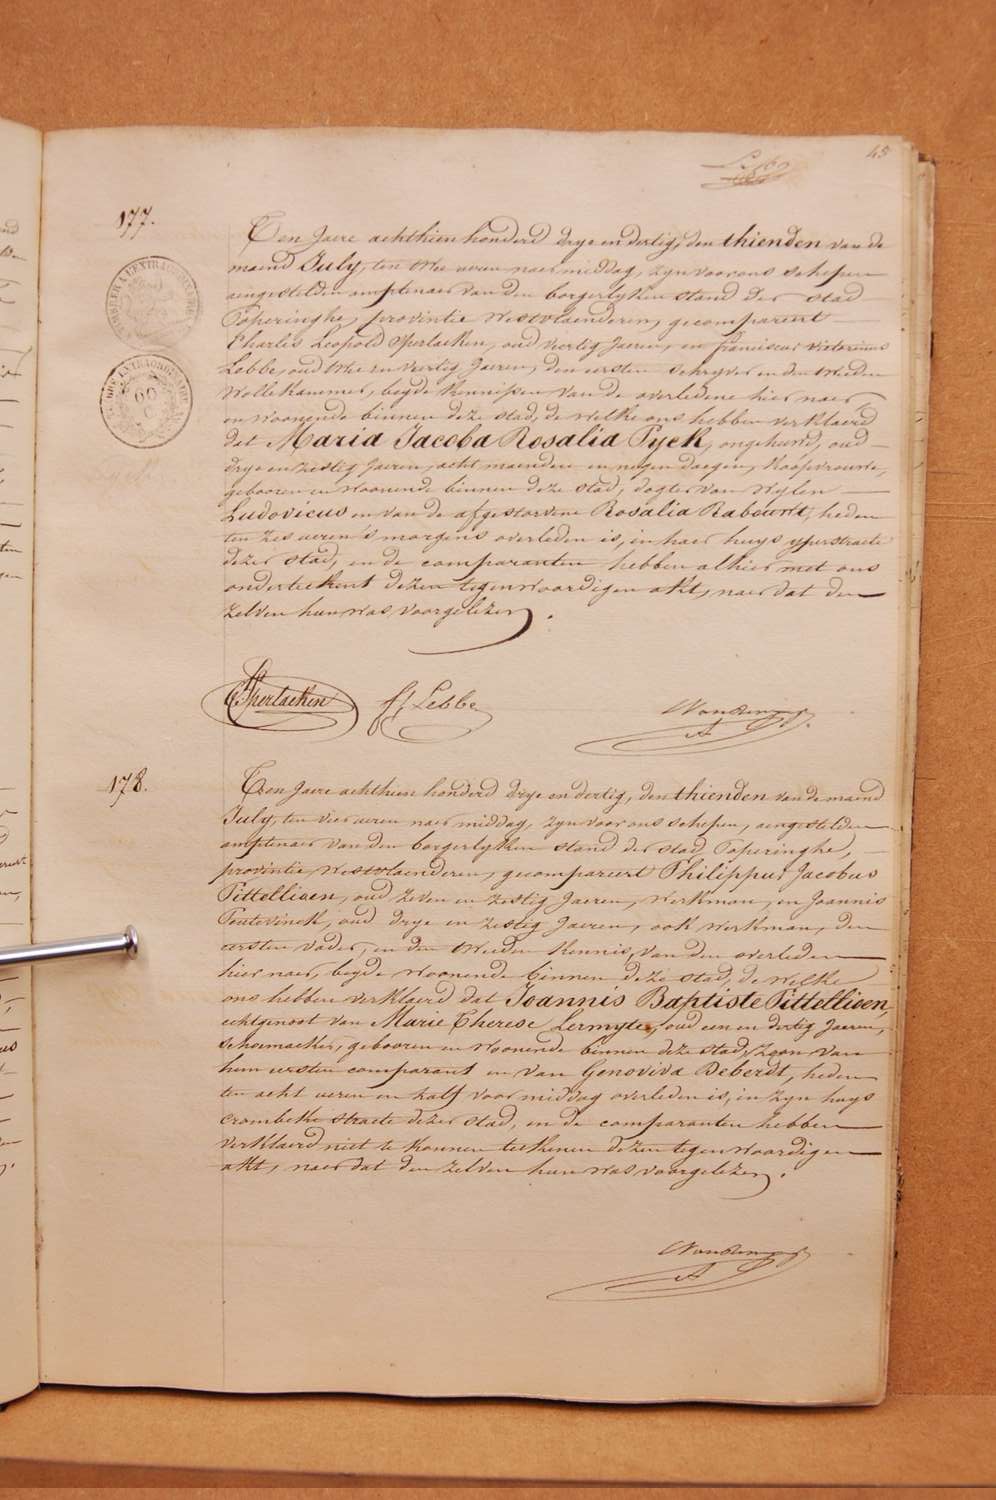 45
177.
Ten Jaere achthien honderd drye en dertig, den thienden van de
maend July, ten twee ueren naer middag, zyn voor ons schepen
aengestelden amptenaer van den borgerlyken stand der stad
Poperinghe, provintie Westvlaenderen, gecompareert
Charles Leopold Sperlaeken, oud veertig Jaeren, en franciscus victorinus
Lebbe, oud twee en veertig Jaeren, den eersten schryver en den tweeden
Wollekammer, beyde kennissen van de overledene hier naer,
en woonende binnen deze stad, de welke ons hebben verklaerd
dat Maria Jacoba Rosalia Pyck, ongehuwd, oud
drye en zestig Jaeren, acht maenden en negen daegen, koopvrouwe,
gebooren en woonende binnen deze stad, dogter van wylen
Ludovicus en van de afgestorvene Rosalia Rabouwt, heden
ten zes ueren 's morgens overleden is, in haer huys yperstraete
dezer stad, en de comparanten hebben alhier met ons
onderteekent dezen tegenwoordigen akt, naer dat den
zelven hun was voorgelezen.
Sperlaeken f. Lebbe
178.
Ten Jaere achthien honderd drye en dertig, den thienden van de maend
July, ten vier ueren naer middag, zyn voor ons schepen, aengestelden
amptenaer van den borgerlyken stand der stad Poperinghe,
provintie Westvlaenderen, gecompareert Philippus Jacobus
Pittellioen, oud zeven en zestig Jaeren, werkman, en Joannis
Peutevinck, oud drye en zestig Jaeren, ook werkman, den
eersten vader, en den tweeden kennis, van den overleden
hier naer, beyde woonende binnen deze stad, de welke
ons hebben verklaerd dat Joannis Baptiste Pittellioen,
echtgenoot van Marie Therese Lermyte, oud een en dertig Jaeren,
schoemaeker, gebooren en woonende binnen deze stad, zoon van
hun eersten comparant en van Genoviva Deberdt, heden
ten acht ueren en half voor middag overleden is, in zyn huys
crombeke straete dezer stad, en de comparanten hebben
verklaerd niet te konnen teekenen dezen tegenwoordigen
akt, naer dat den zelven hun was voorgelezen.